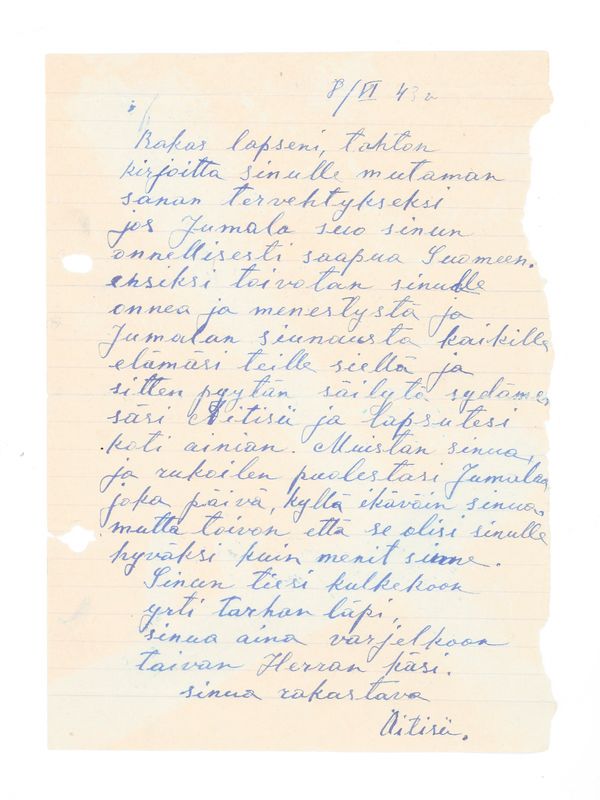 8/VI 43a
Rakas lapseni, tahton
kirjoitta sinulle mutaman
sanan tervehtykseksi
jos Jumala suo sinun
onnellisesti saapua Suomeen.
ensiksi toivotan sinulle
onnea ja menestystä ja
Jumalan siunausta kaikille
elämäsi teille siellä ja
sitten pyytän säilytä sydäme,
säsi Äitisü ja lapsutesi
koti ainian. Muistan sinua,
ja rukoilen puolestasi Jumalaa,
joka päivä, kyllä ikäväin sinua,
mutta toivon että se olisi sinulle
hyväksi kuin menit sinne.
Sinun tiesi kulkekoon
yrti tarhan läpi,
sinua aina varjelkoon
taivan Herran käsi.
sinua rakastava
Äitisü.